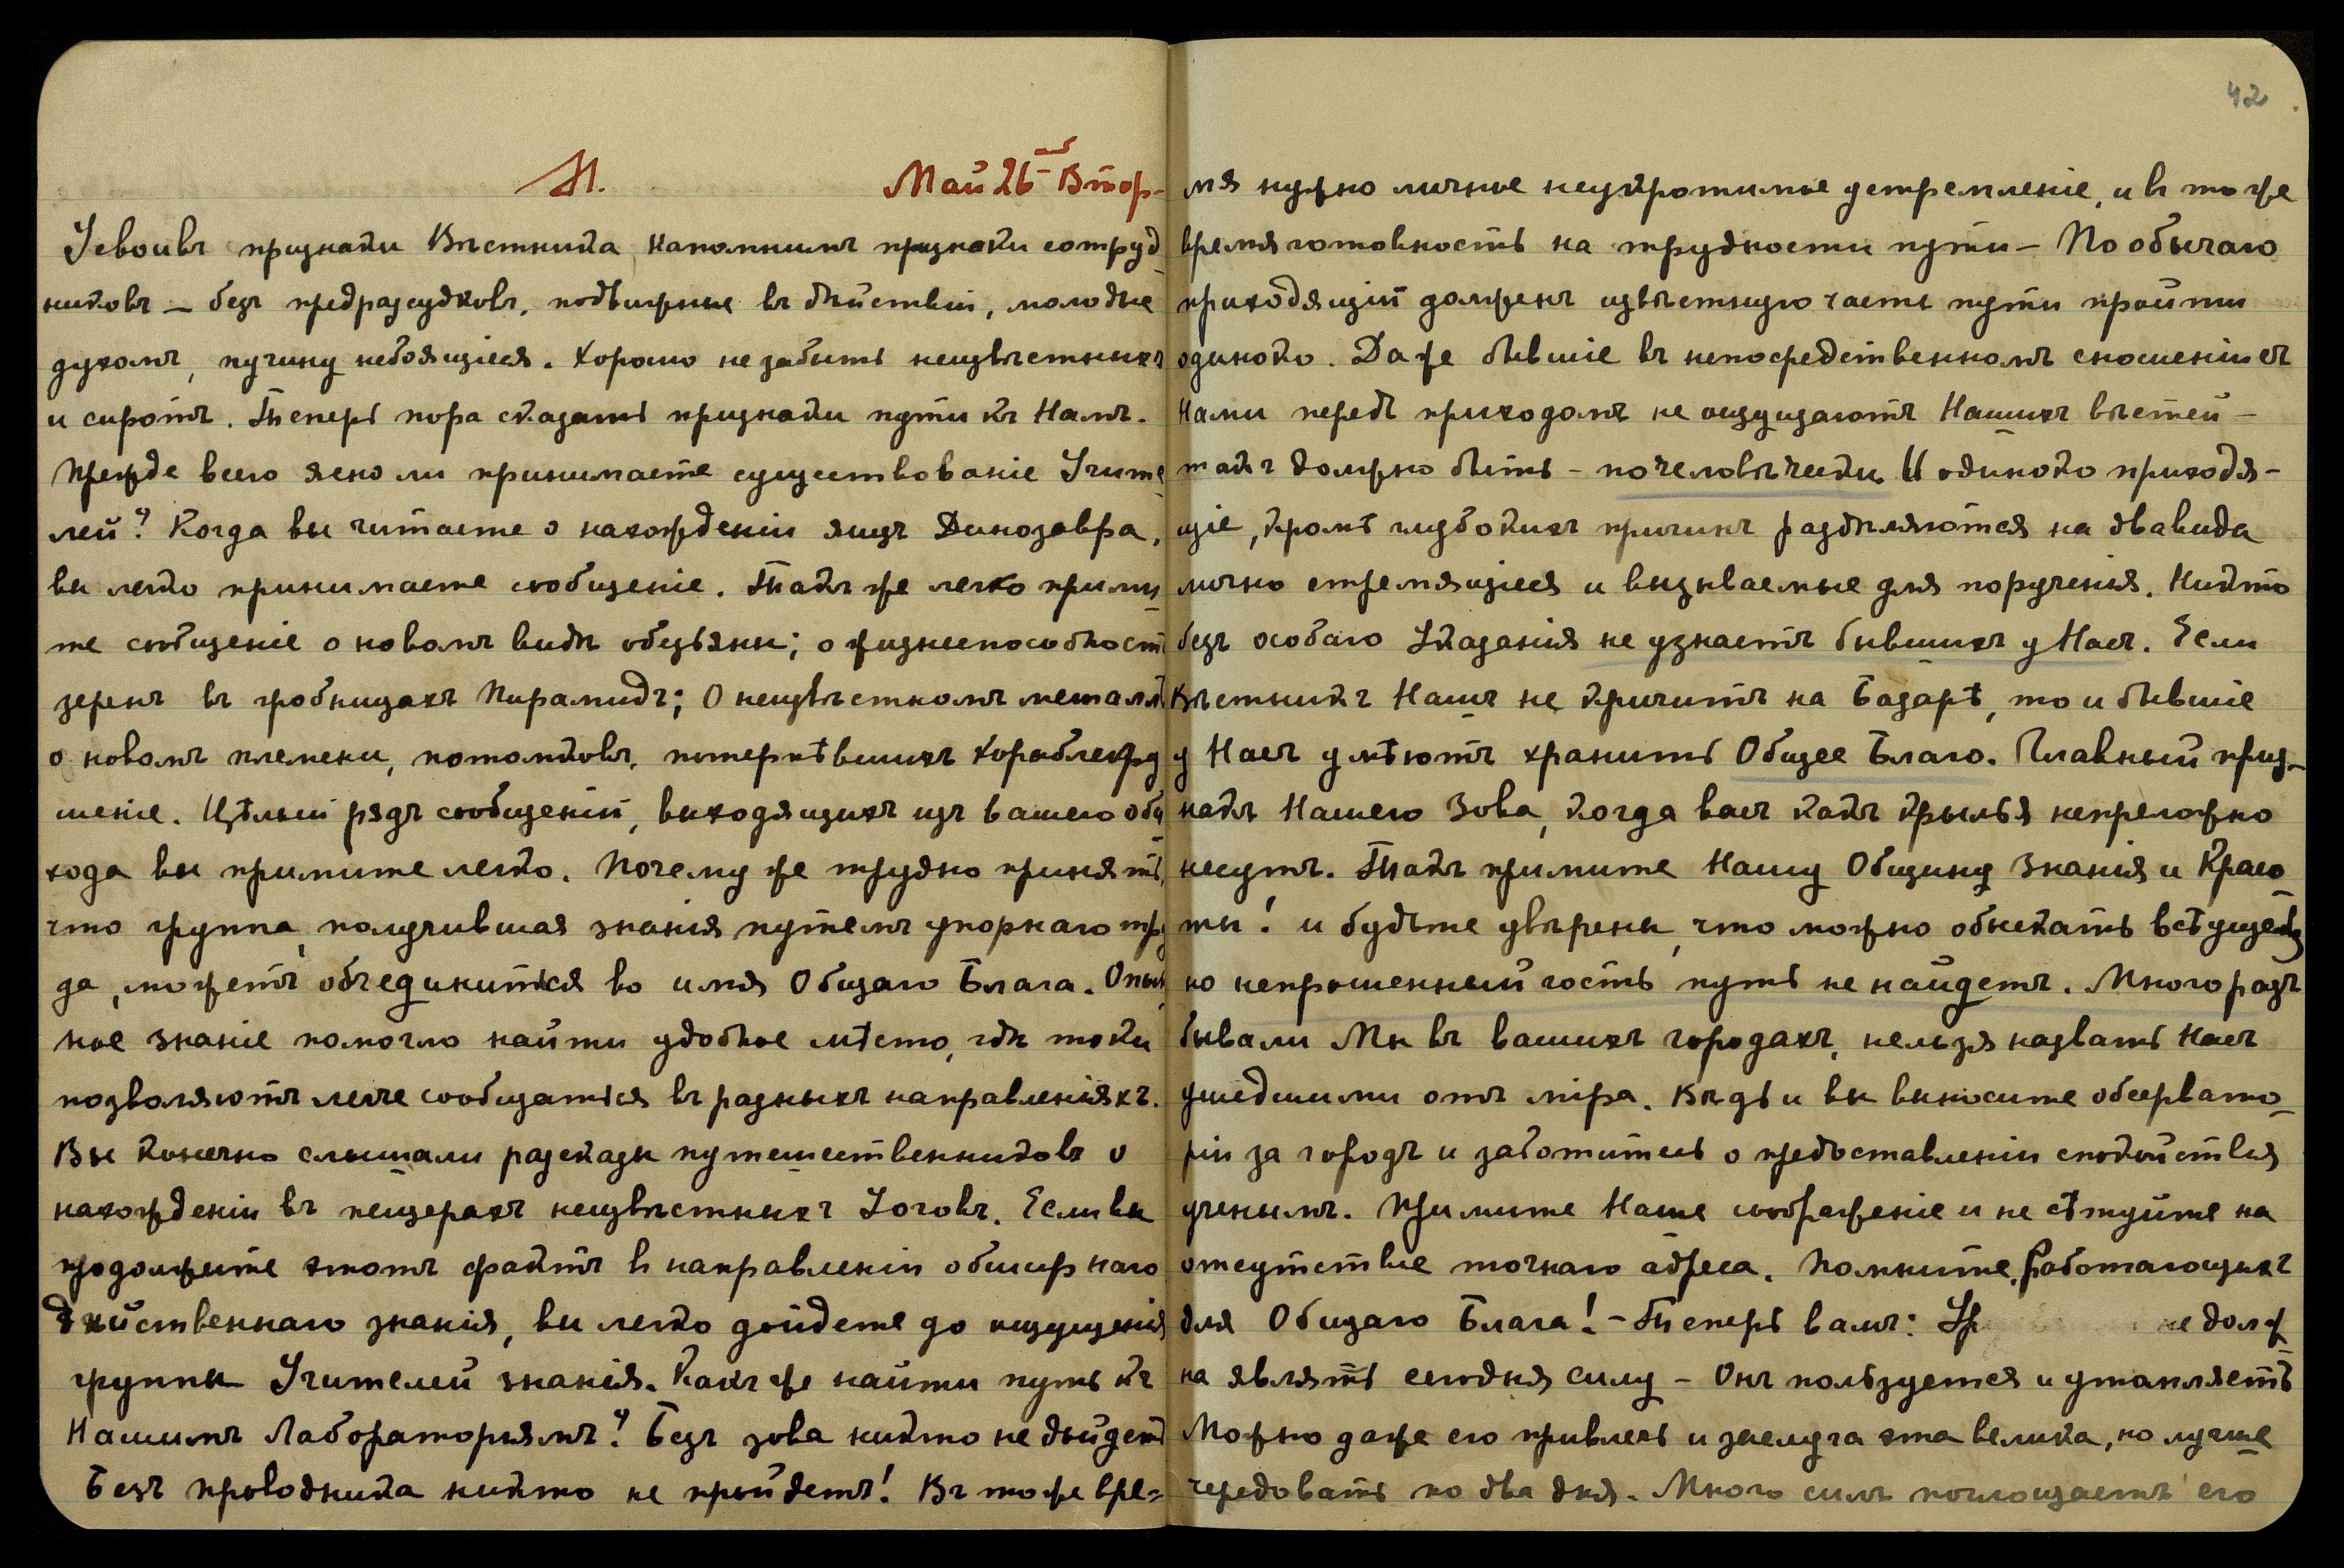 42
М. Май 26 Втор-
Усвоивъ признаки Вѣстника напомнимъ признаки сотруд-
никовъ — безъ предразсудковъ, подвижные въ дѣйствіи, молодые
духомъ, пучину небоящіеся. Хорошо не забыть неизвѣстныхъ
и сиротъ. Теперь пора сказать признаки пути къ Намъ.
Прежде всего ясно ли принимаете существованіе Учите-
лей? Когда вы читаете о нахожденіи яицъ Динозавра,
вы легко принимаете сообщеніе. Такъ же легко прими-
те сообщеніе о новомъ видѣ обезьяны; о жизнеспособност
зеренъ въ гробницахъ Пирамидъ; О неизвѣстномъ металлѣ
о новомъ племени, потомковъ, потерпѣвшихъ кораблекру
шеніе. Цѣлый рядъ сообщеній, выходящихъ изъ вашего оби
хода вы примите легко. Почему же трудно принять,
что группа, получившая знанія путемъ упорнаго тру
да, можетъ объединиться во имя Общаго Блага. Опыт
ное знаніе помогло найти удобное мѣсто, гдѣ токи
позволяютъ легче сообщаться въ разныхъ направленіяхъ.
Вы конечно слышали разсказы путешественниковъ о
нахожденіи въ пещерахъ неизвѣстныхъ Іоговъ. Если вы
продолжите этотъ фактъ в направленіи обширнаго
дѣйственнаго знанія, вы легко дойдете до ощущенія
группы Учителей знанія. Какъ же найти путь къ
Нашимъ Лабораторіямъ? Безъ зова никто не дойдетъ
Безъ проводника никто не пройдетъ! Въ тоже вре=
мя нужно личное неукротимое устремленіе, и въ тоже
время готовность на трудности пути — По обычаю
приходящій долженъ извѣстную часть пути пройти
одиноко. Даже бывшіе въ непосредственномъ сношеніи съ
Нами передъ приходомъ не ощущаютъ Нашихъ вѣстей —
такъ должно быть — почеловѣчески. И одиноко приходя-
щіе, кромѣ глубокихъ причинъ раздѣляются на два вида
лично стремящіеся и вызываемые для порученія. Никто
безъ особаго Указанія не узнаетъ бывшихъ у Насъ. Если
Вѣстникъ Нашъ не кричитъ на Базарѣ, то и бывшіе
у Насъ умѣютъ хранить Общее Благо. Главный приз-
накъ Нашего Зова, когда васъ какъ крылья непреложно
несутъ. Такъ примите Нашу Общину Знанія и Красо-
ты! и будьте увѣрены, что можно обыскать всѣ ущелья
но непрошенный гость путь не найдетъ. Много разъ
бывали Мы въ вашихъ городахъ, нельзя назвать Насъ
ушедшими отъ міра. Вѣдь и вы выносите обсервато-
ріи за городъ и заботитесь о предоставленіи спокойствія
ученымъ. Примите Наше соображеніе и не сѣтуйте на
отсутствіе точнаго адреса. Помните, работающихъ
для Общаго Блага! — Теперь вамъ: Ур не долж-
на являть сегодня силу — Онъ пользуется и утомляетъ
Можно даже его привлечь и заслуга эта велика, но лучше
чередовать по два дня. Много силъ поглощаетъ его